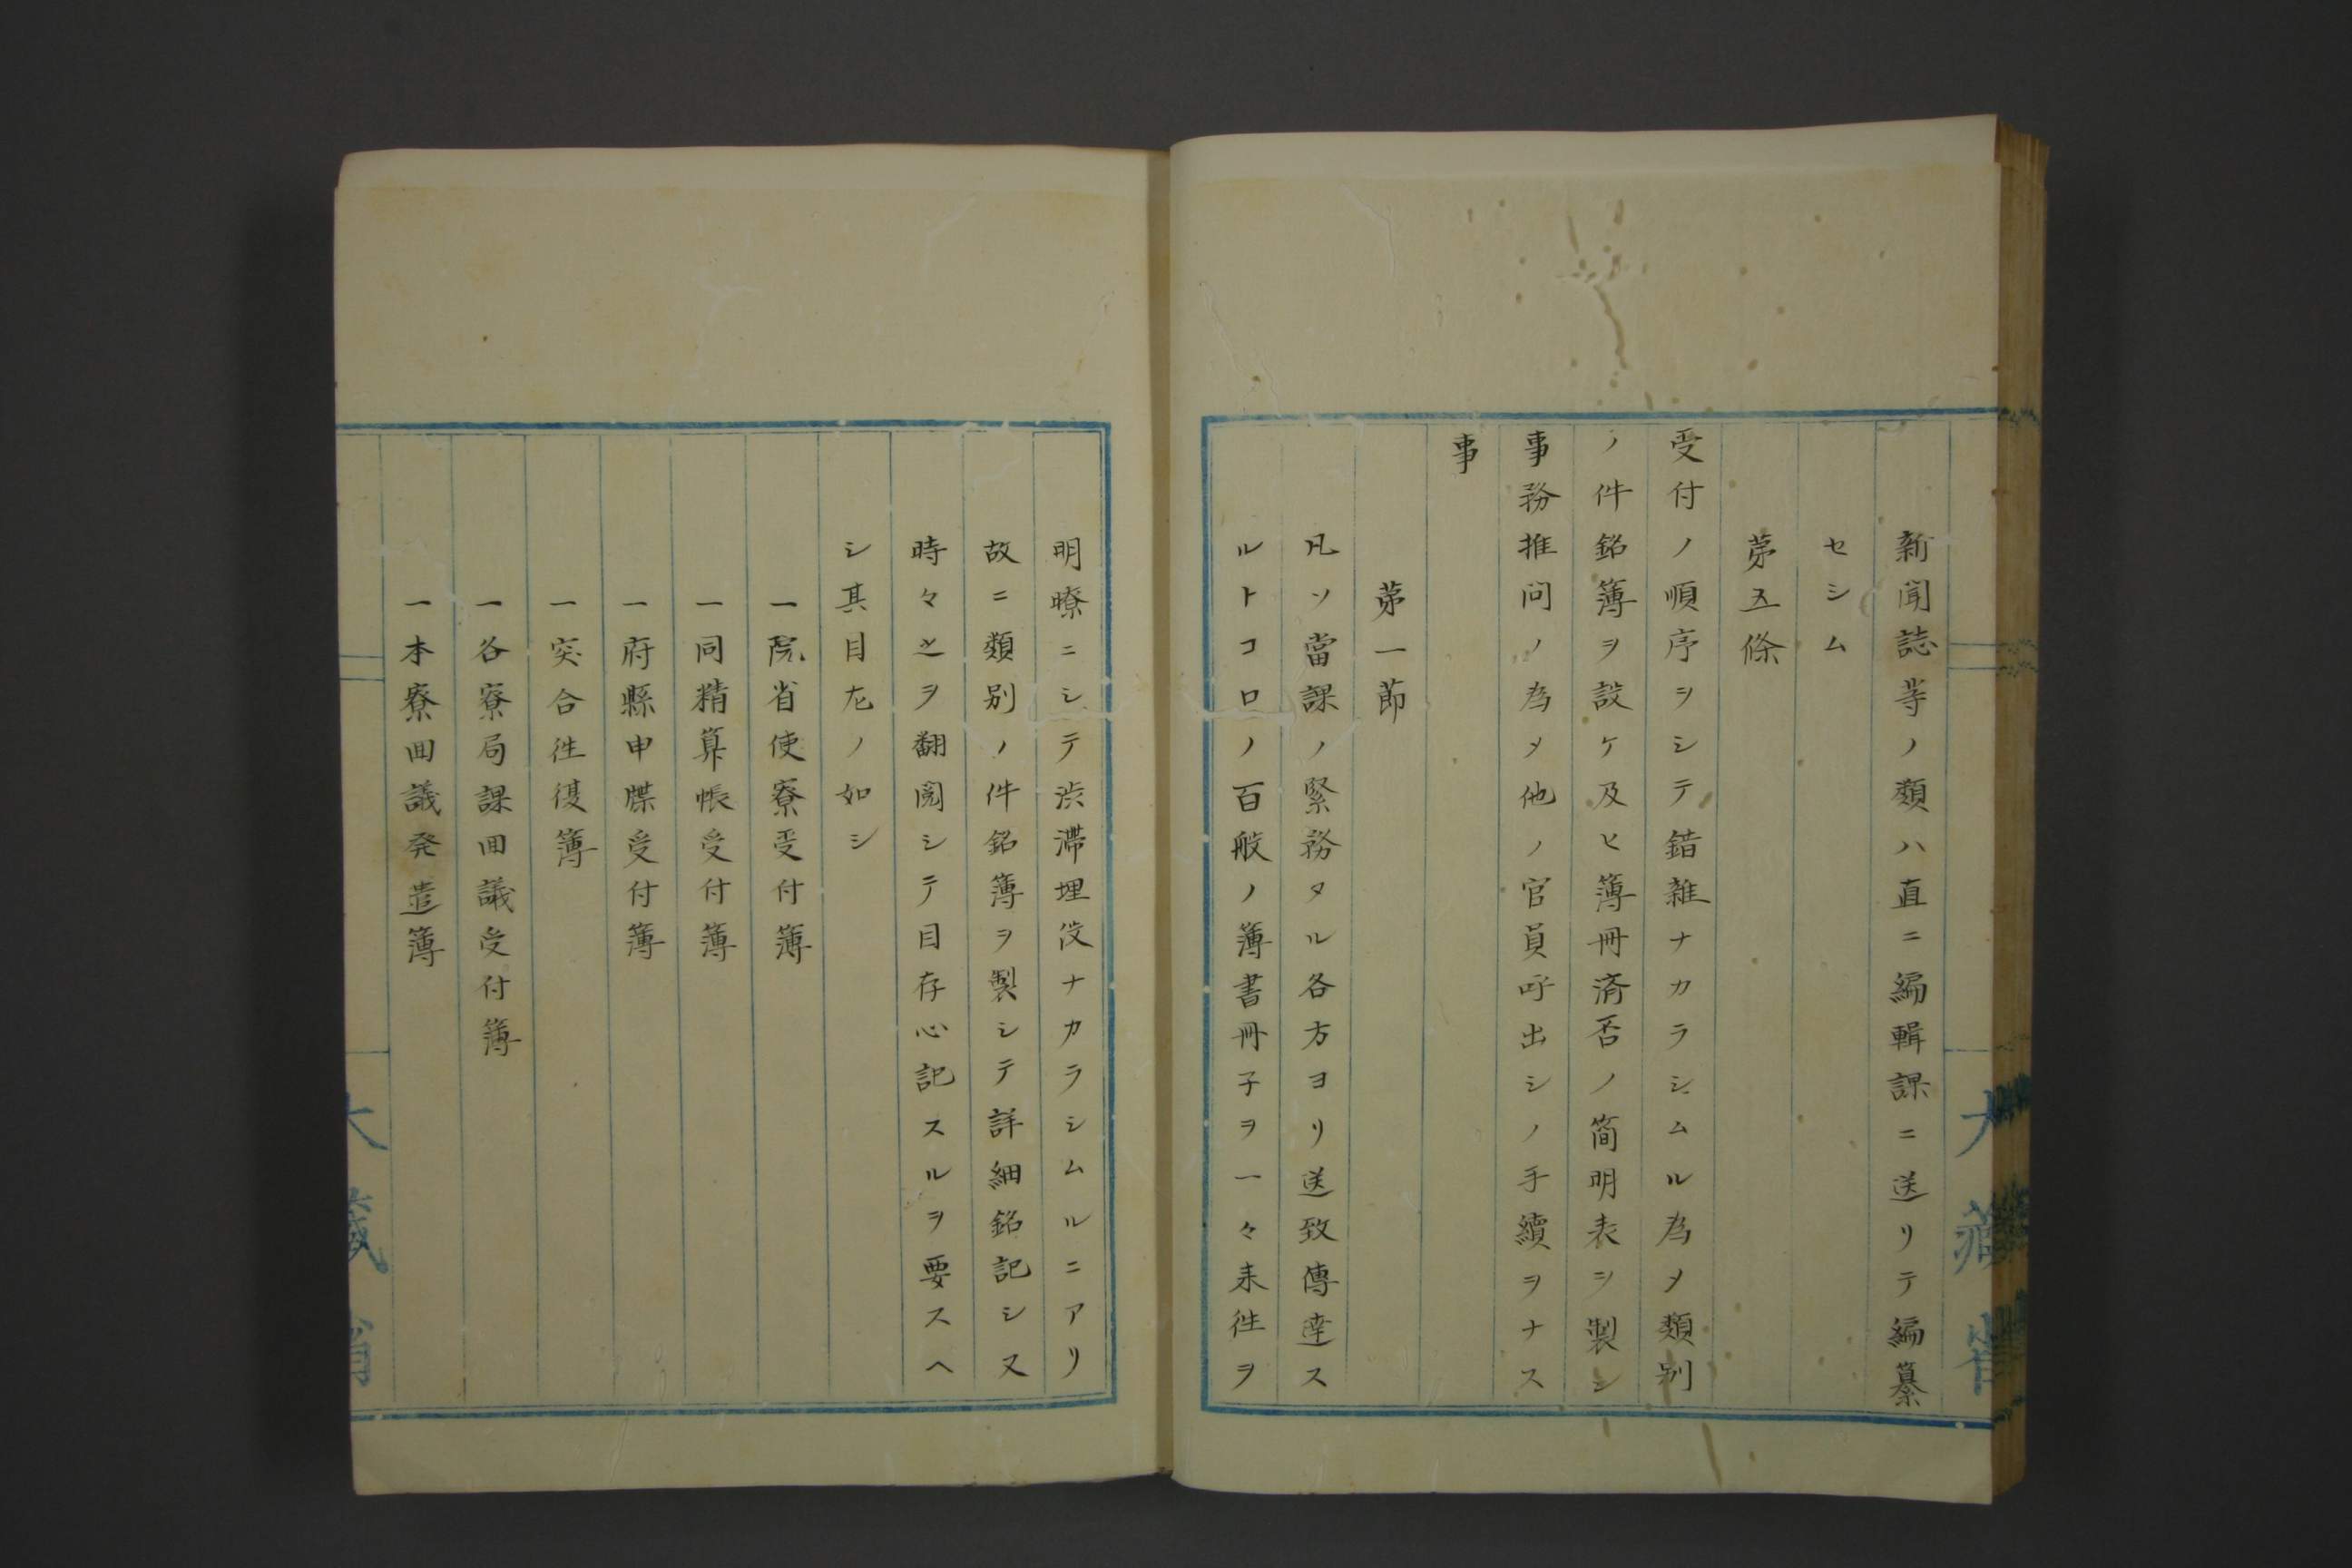 新聞誌等ノ類ハ直ニ編輯課ニ送リテ編纂
セシム
第五條
受付ノ順序ヲシテ錯雑ナカラシムル為メ類別
ノ件銘簿ヲ設ケ及ヒ簿冊済否ノ簡明表ヲ製シ
事務推問ノ為メ他ノ官員呼出シノ手續ヲナス
事
第一節
凡ソ當課ノ緊務タル各方ヨリ送致傳達ス
ルトコロノ百般ノ簿書冊子ヲ一々来往ヲ
明瞭ニシテ渋滞埋没ナカラシムルニアリ
故ニ類別ノ件銘簿ヲ製シテ詳細銘記シ又
時々之ヲ翻閲シテ目存心記スルヲ要スヘ
シ其目左ノ如シ
一院省使寮受付簿
一同精算帳受付簿
一府縣申牒受付簿
一突合往復簿
一各寮局課回議受付簿
一本寮回議発遣簿
大藏省
大藏省